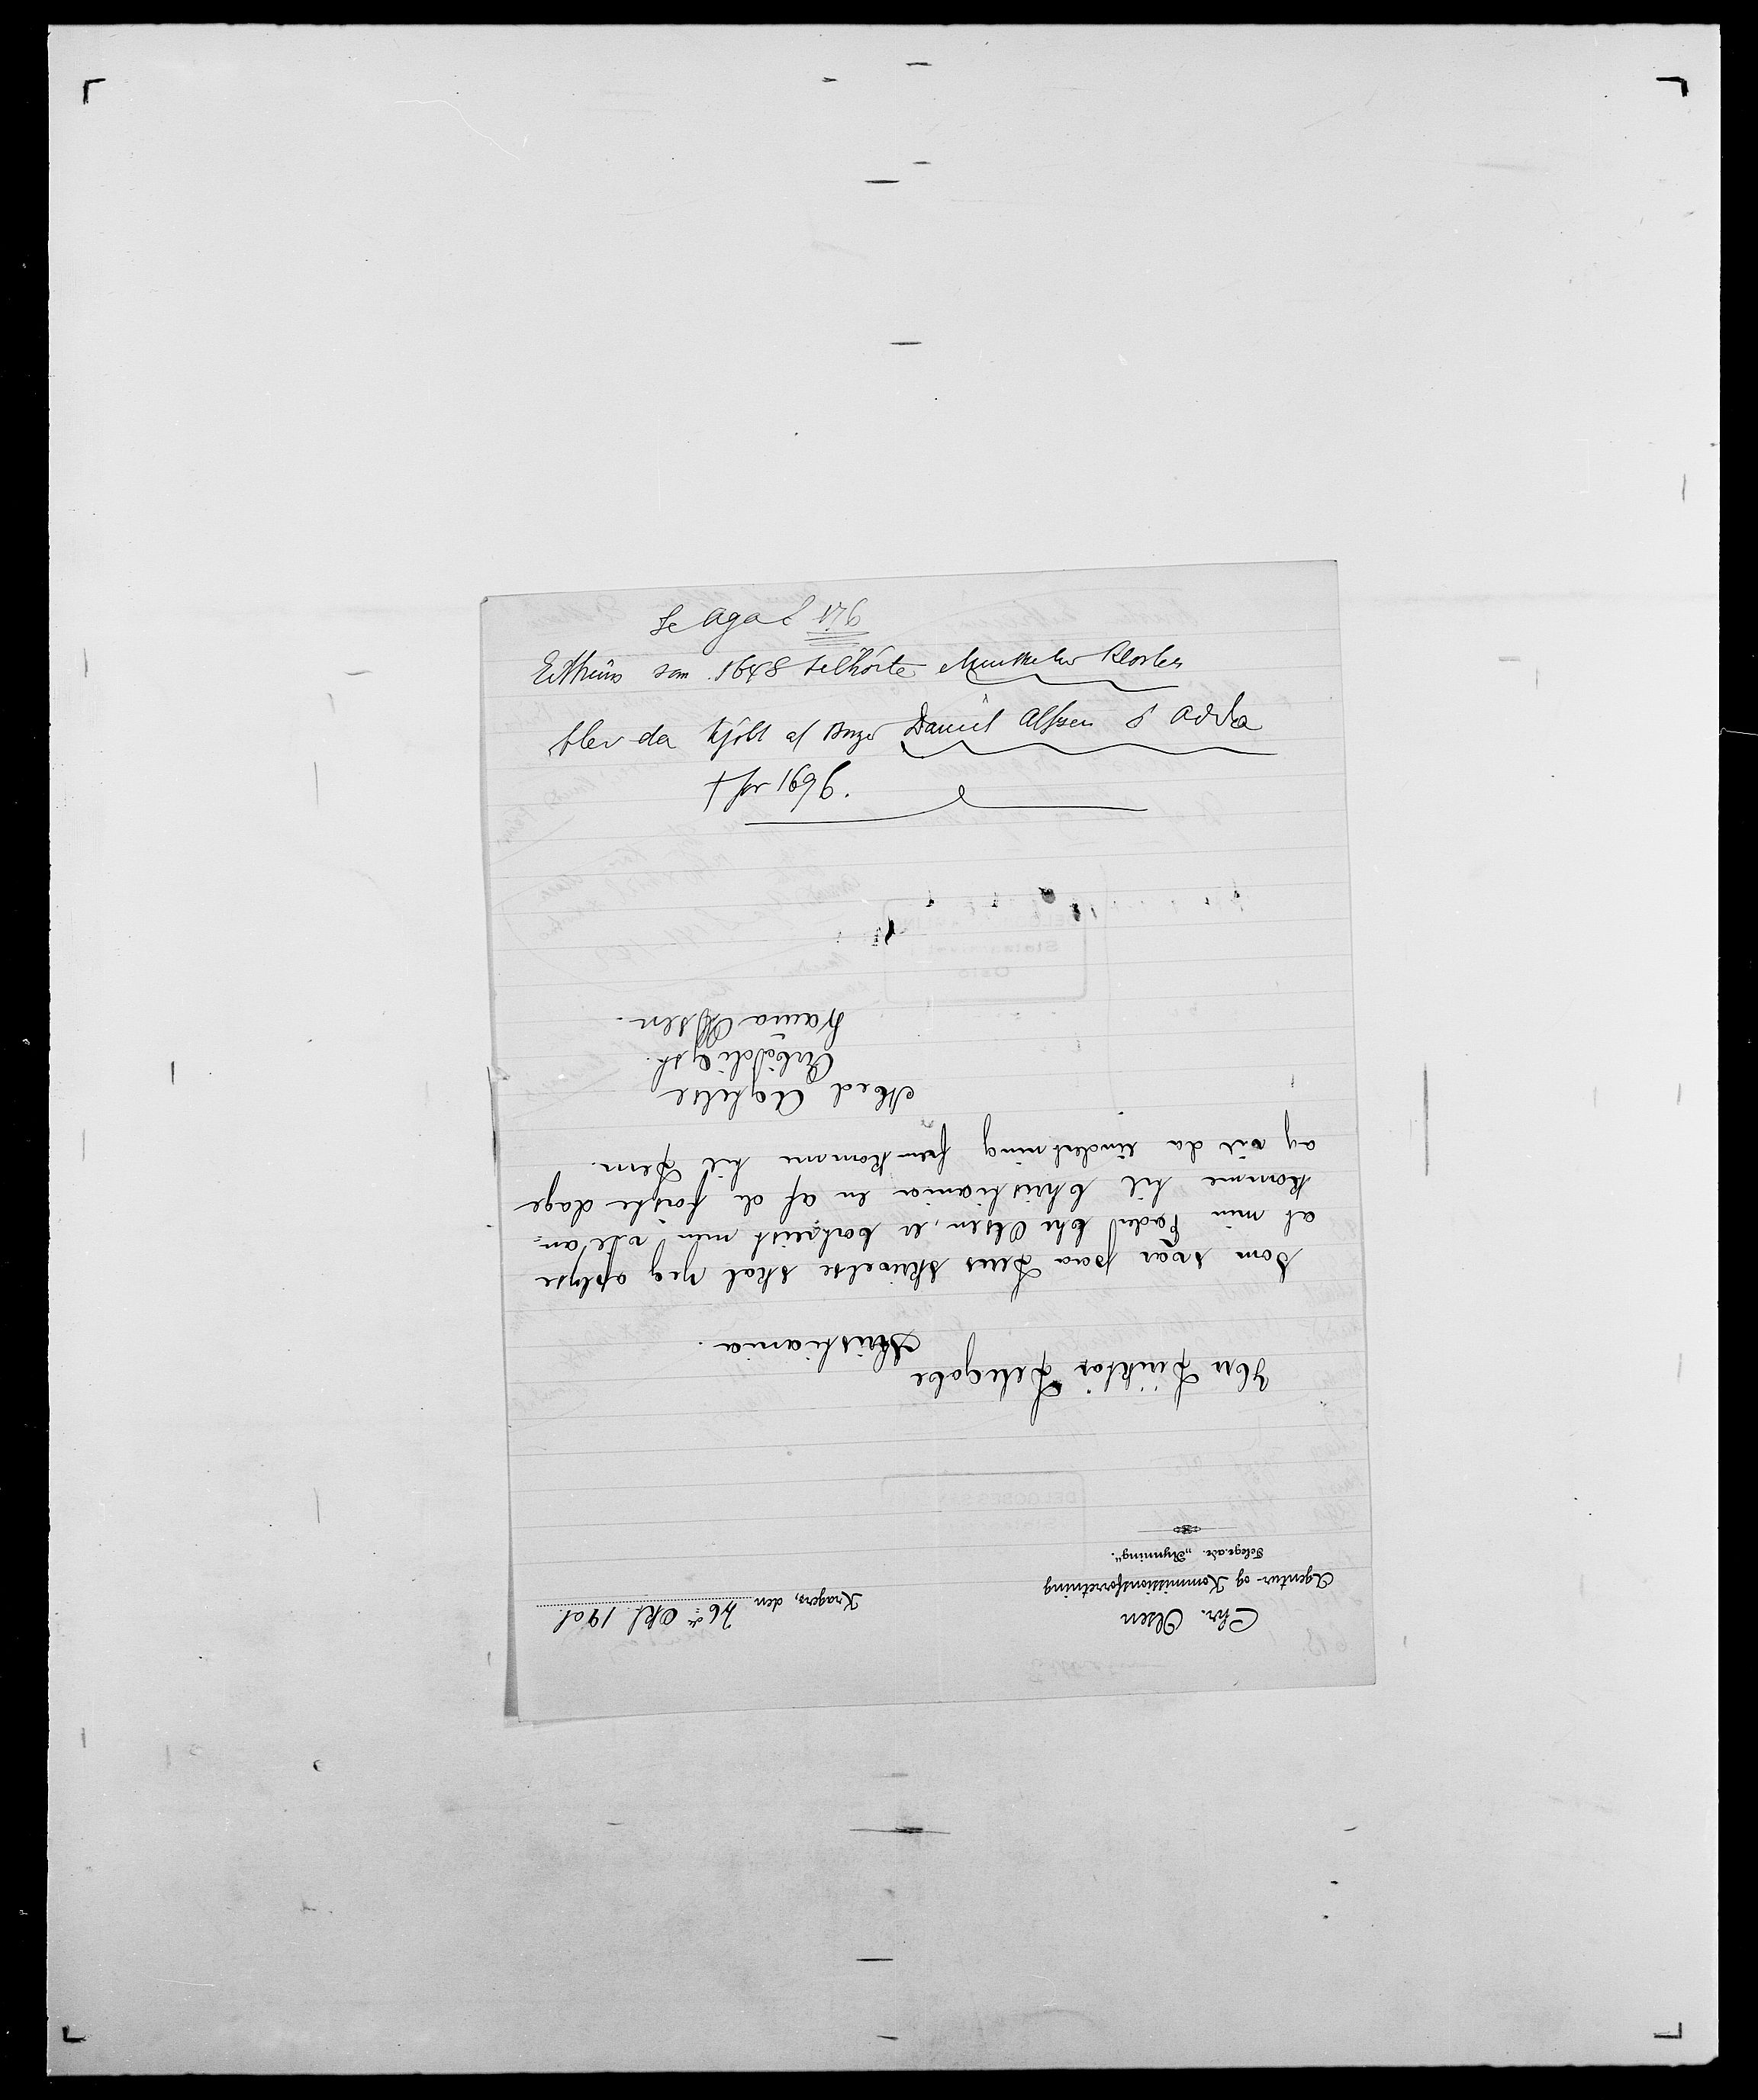 Se Aga S 176
Et Huus som 1648 tilhörte Munkeliv Kloster
blev da kjöbt af Borger Daniel Alfsen d Adda
† før 1696.
Chr. Olsen
Agentur- og Kommissionsforretning
Telegr.adr. „Rynning".
Kragerø, den 26de Okt. 1901
Herr Direktør Delegobe
Kristiania.
Som svar paa Deres skrivelse skal jeg oplyse
at min Fader Chr Olsen, er bortreist men vil an=
komme til Christiania en af de første dage
og vil da underretning frem komme til Dem.
Med Agtelse
Ærbødigst.
Olsen.